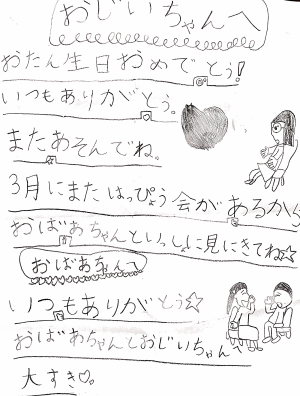 おじいちゃんへ
おたん生日おめでとう!
いつもありがとう。
またあそんでね。
3月にまたはっぴょう会があるから
おばあちゃんといっしょに見にきてね☆
おばあちゃんへ
いつもありがとう☆
おばあちゃんとおじいちゃん、
大すき♡。